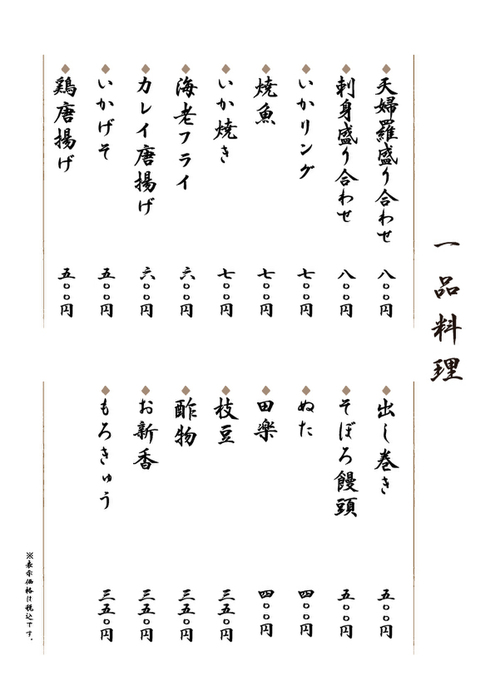 一品料理
◆天婦羅盛り合わせ 八〇〇円
◆刺身盛り合わせ 八〇〇円
◆いかリング 七〇〇円
◆焼魚 七〇〇円
◆いか焼き 七〇〇円
◆海老フライ 六〇〇円
◆カレイ唐揚げ 六〇〇円
◆いかげそ 五〇〇円
◆鶏唐揚げ 五〇〇円
◆出し巻き 五〇〇円
◆そぼろ饅頭 五〇〇円
◆ぬた 四〇〇円
◆田楽 四〇〇円
◆枝豆 三五〇円
◆酢物 三五〇円
◆お新香 三五〇円
◆もろきゅう 三五〇円
※表示価格は税込です。